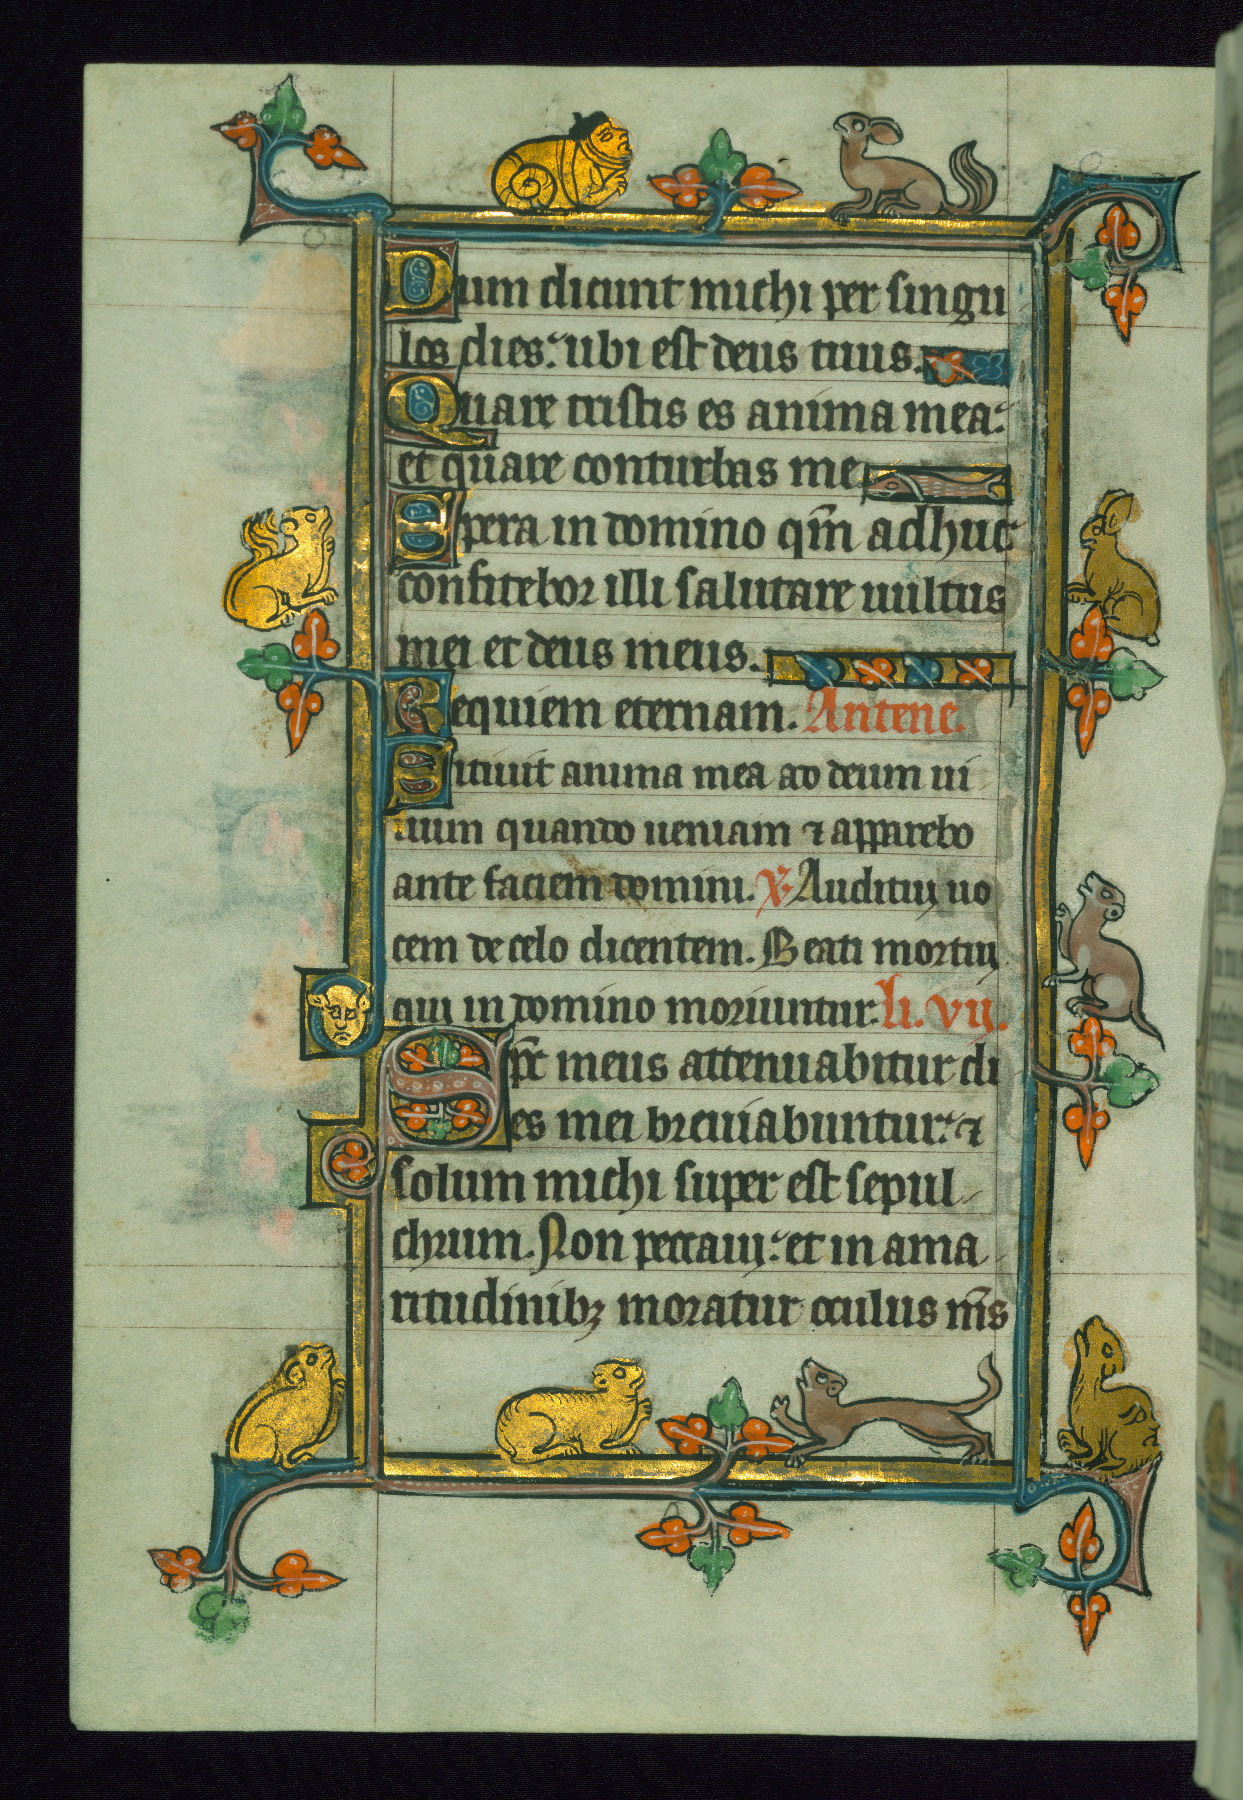 Dum dicunt michi per singu
los dies: ubi est deus tuus.
Quare tristis es anima mea:
et quare conturbas me
Spera in domino qm̄ adhuc
confitebor illi salutare uultus
mei et deus meus.
Requiem eternam. Antene.
Sitiuit anima mea ad deum ui
uum quando ueniam ⁊ apparebo
ante faciem domini. V. Audiuij uo
cem de celo dicentem. Beati mortuij
qui in domino moriuntur. li. vij.
Spc̄ meus attenuabitur di
es mei breuiabuntur: ⁊
solum michi super est sepul
chrum. Non peccauij: et in ama
ritudinibꝫ moratur oculus ms̄